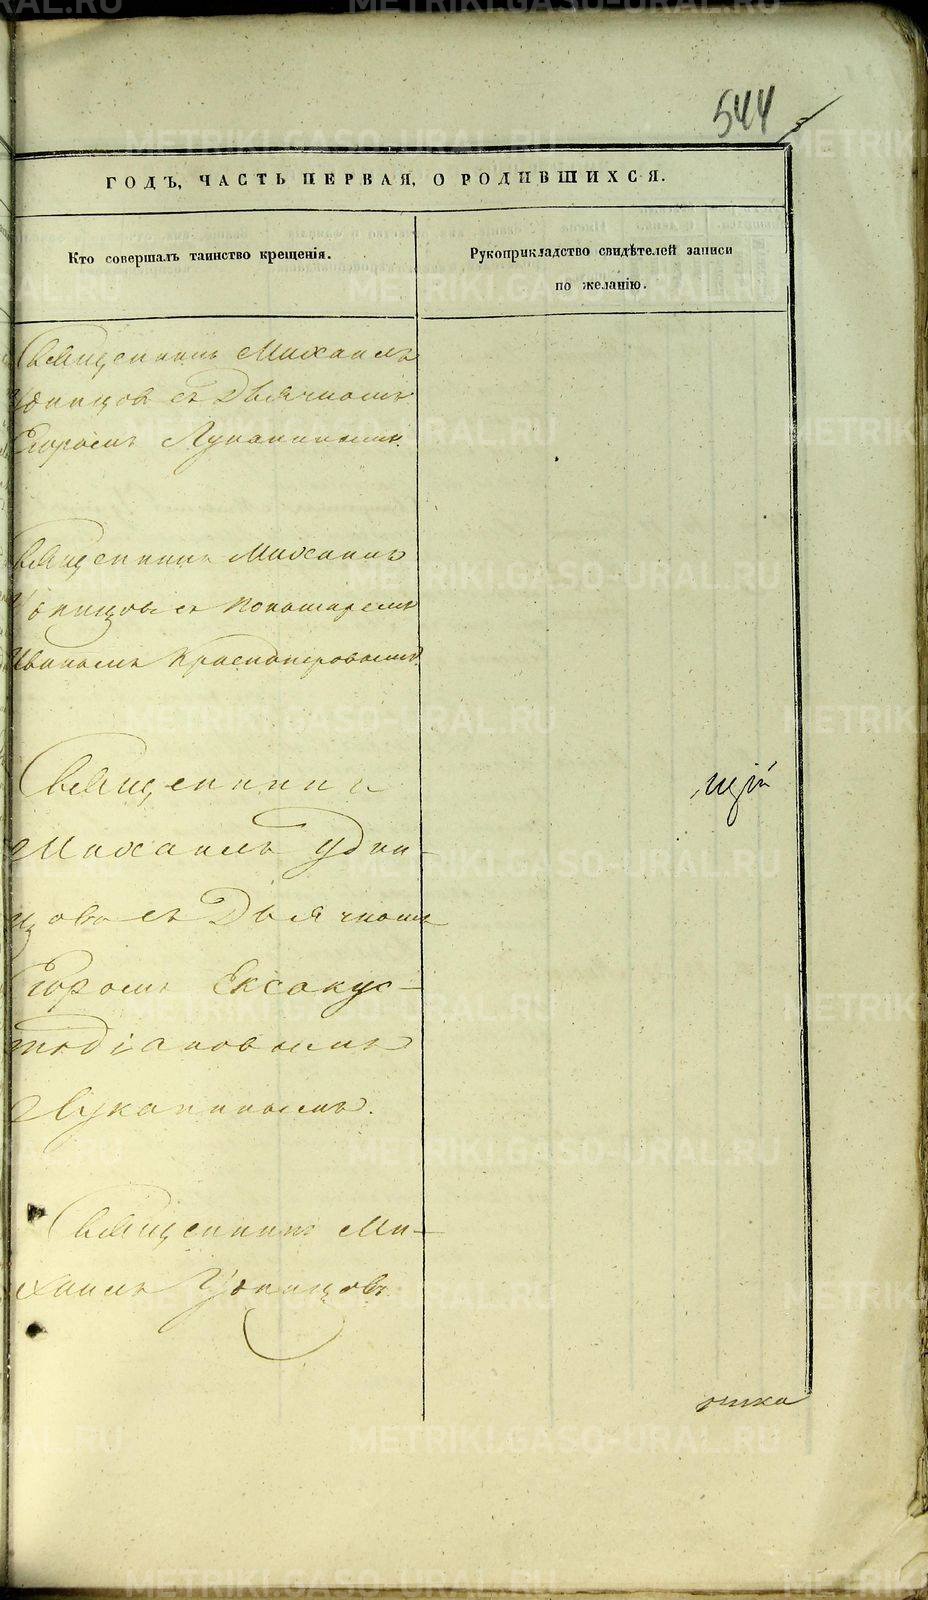 544
ГОДЪ, ЧАСТЬ ПЕРВАЯ, О РОДИВШИХСЯ.
Кто совершалъ таинство крещенія.
Рукоприкладство свидѣтелей записи
по желанію.
Священникъ Михаилъ
Удинцовъ съ Дьячкомъ
Егоромъ Луканинымъ
Священникъ Михаилъ
Удинцовъ съ Пономаремъ
Иваномъ Красноперовымъ
Священникъ
Михаилъ Удин-
цовъ съ Дьячкомъ
Егоромъ Ексакус-
тодіановымъ
Луканинымъ.
Священникъ Ми-
хаилъ Удинцовъ
METRIKI.GASO-URAL.RU